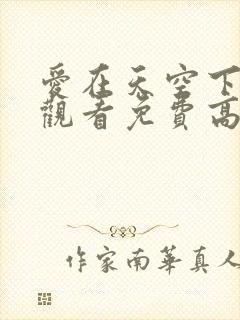 愛在天空下
觀看免費高
作家南華真人